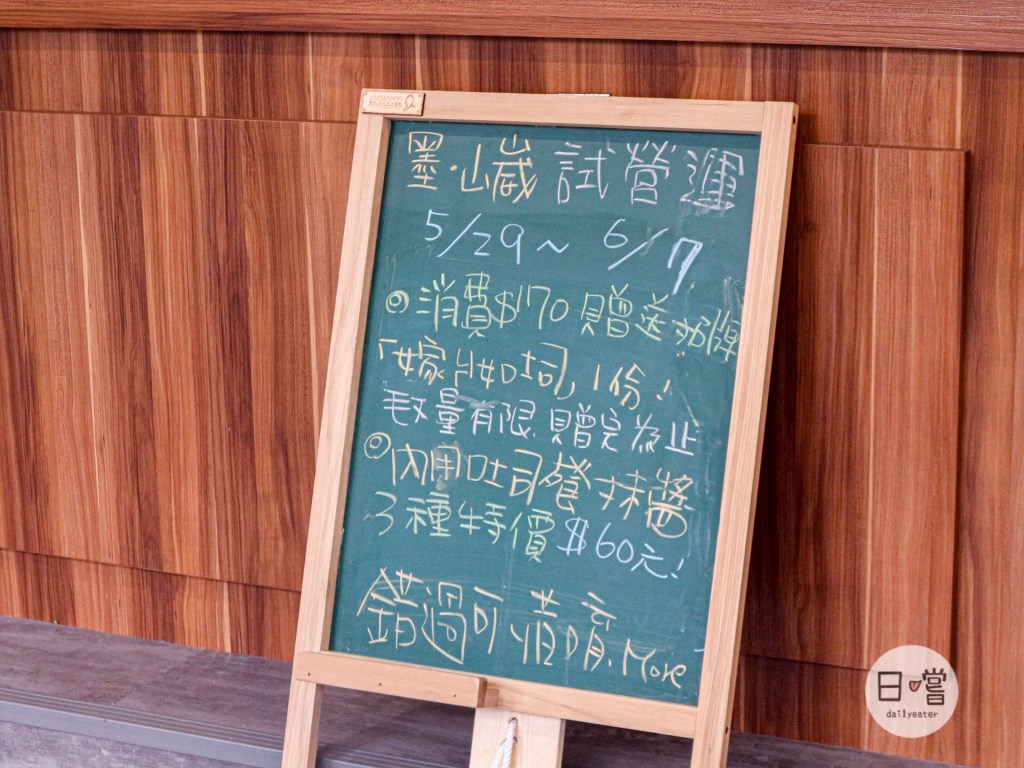 墨·山嵗 試營運
5/29~ 6/7
◎消費$170 贈送招牌
「嫁妝吐司」1份!
數量有限 贈完為止
◎內用吐司餐 抹醬
3種特價$60元!
錯過可惜 More
日嚐
dailyeater